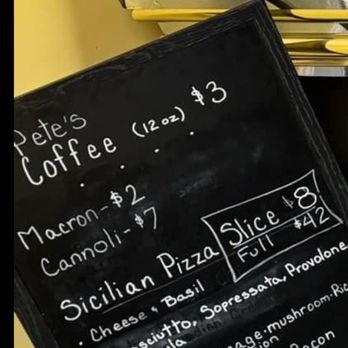 Pete's
Coffee (12 oz) $3
Macron- $2
Cannoli- $7
Sicilian Pizza
Slice $8
Full $42
• Cheese & Basil
sciutto, Sopressata, Provolone
mushroom-Ric